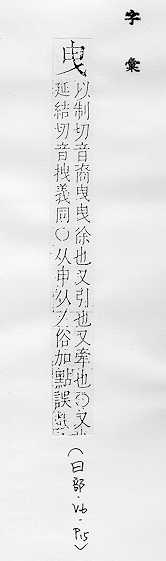 字彙
曳
以制切音裔曳曳徐也又引也又牽也〇又
延結切音拽義同〇从申从丿俗加點誤
(曰部·V6·P15)